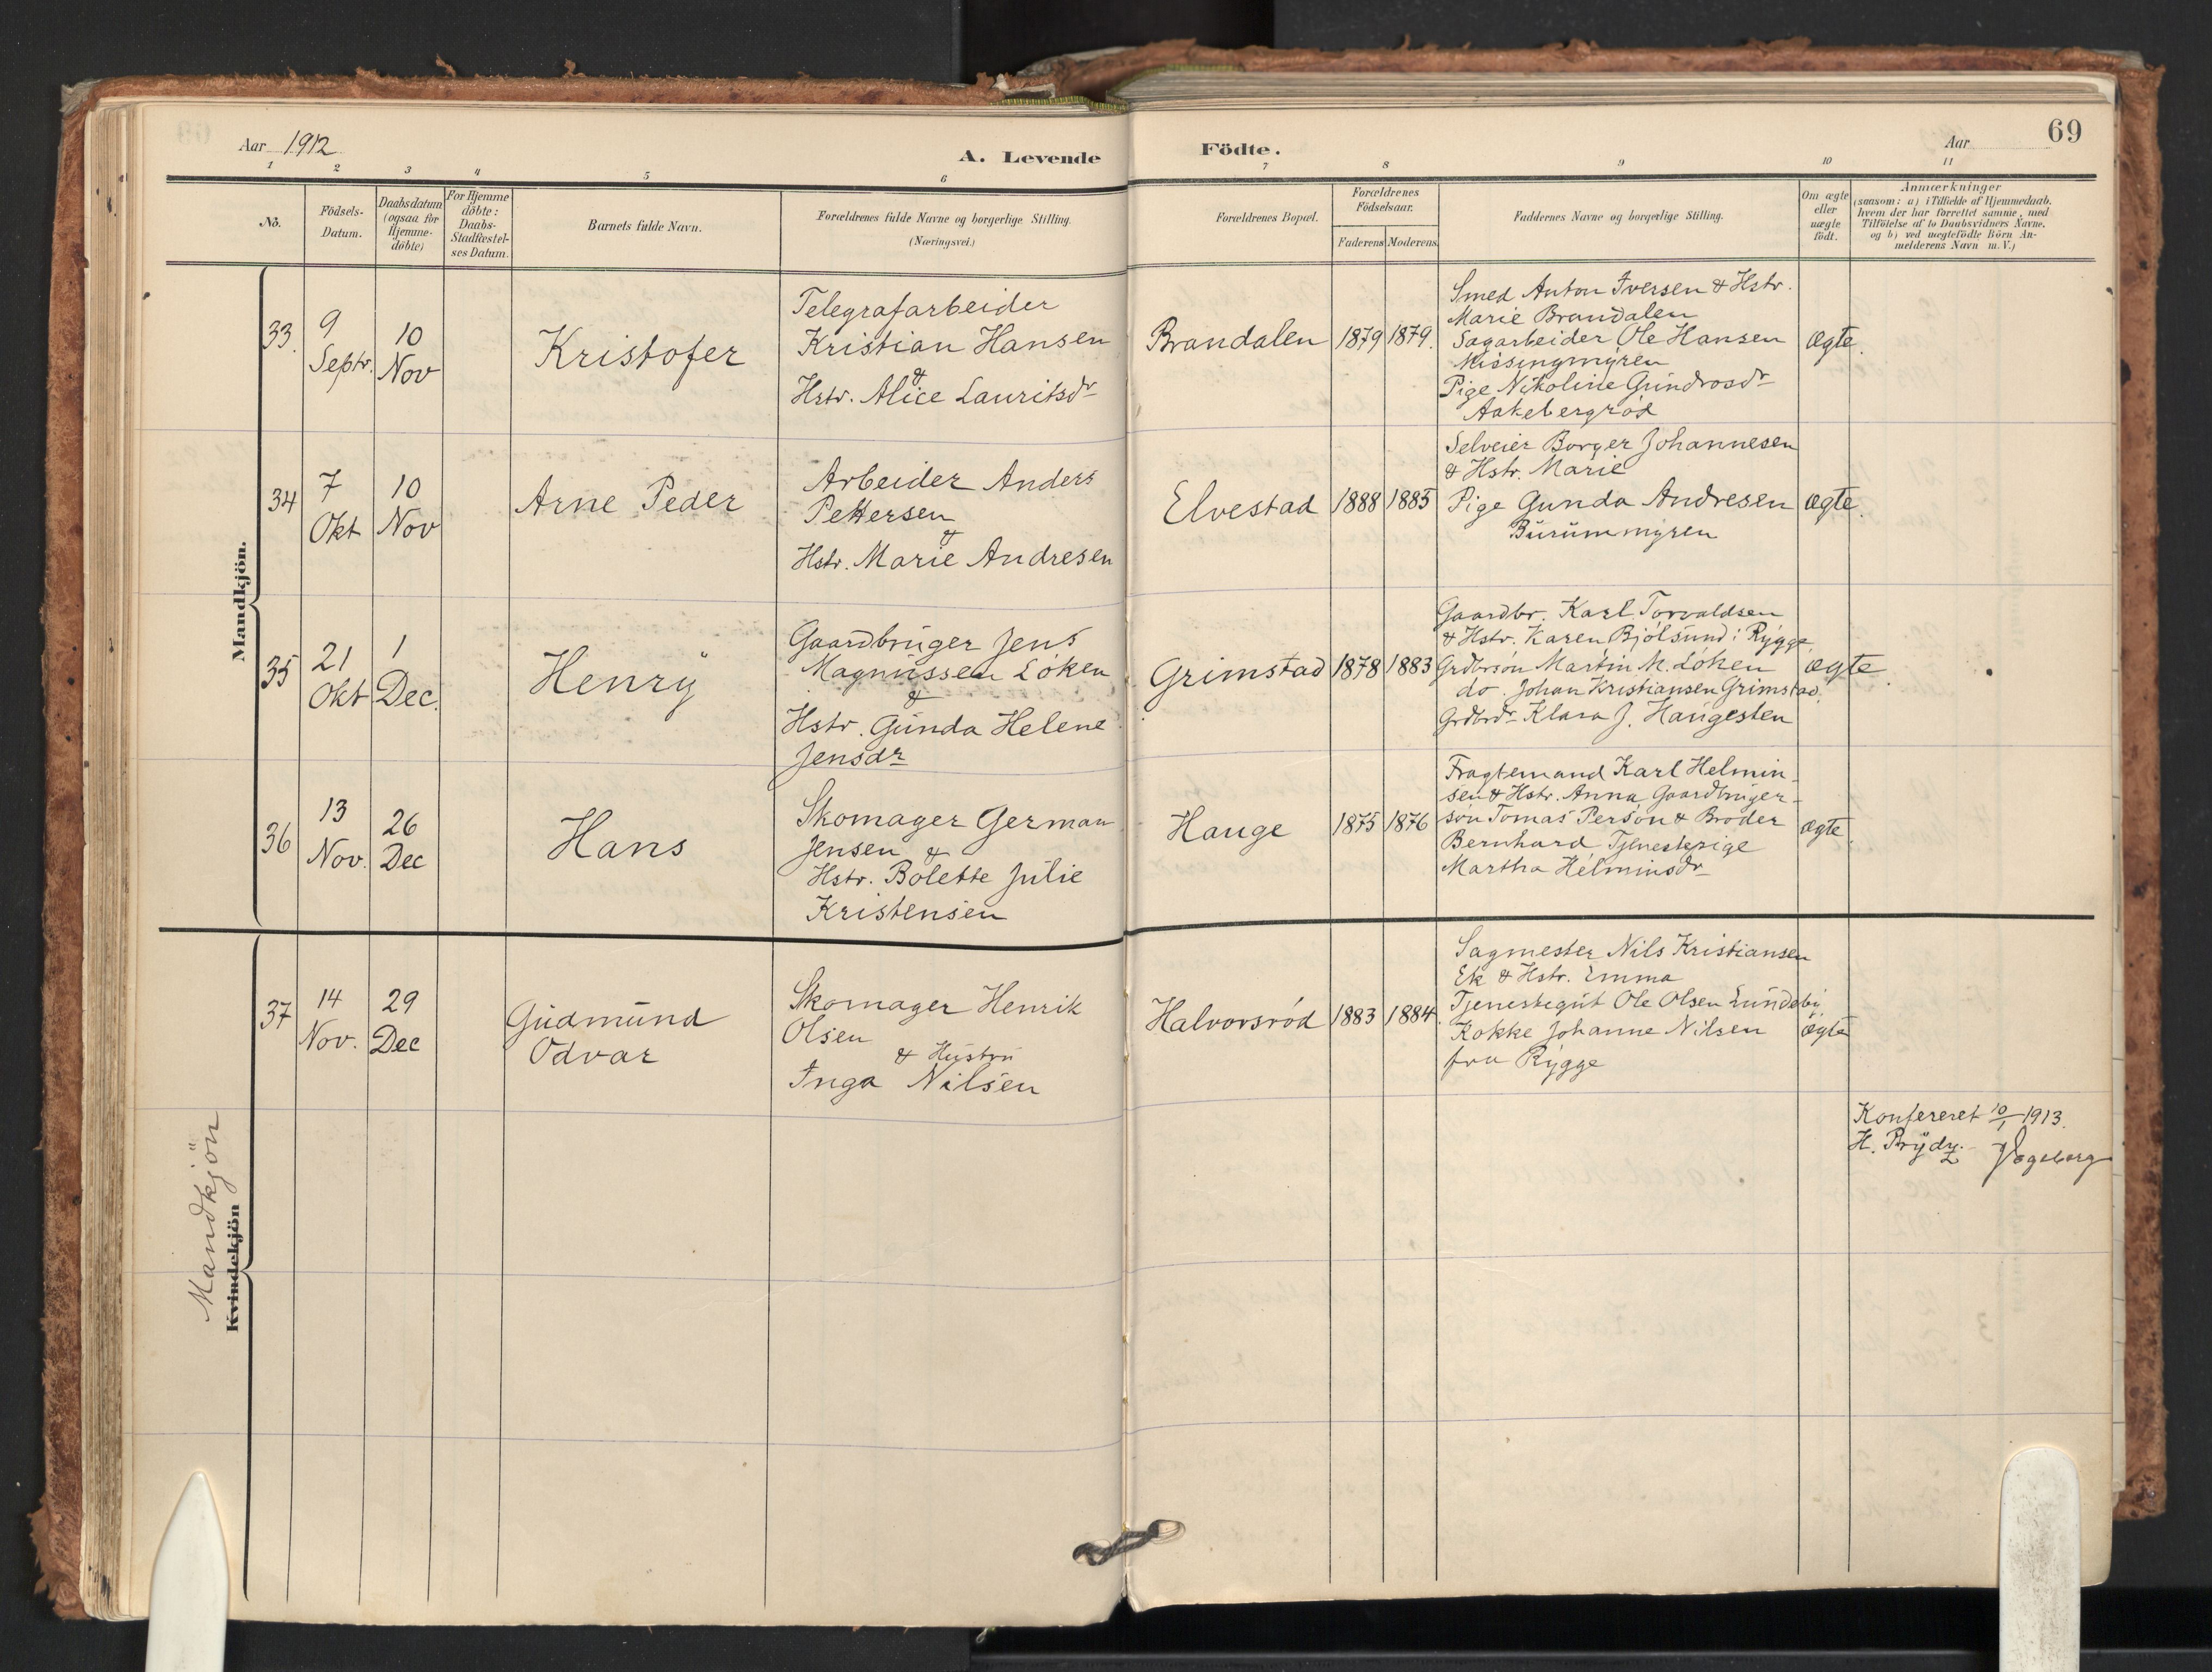 Aar 1912
A. Levende
Födte.
Aar
69
1 2 3 4 5 6 7 8 9 10 11
No.
Födsels-
Datum.
Daabsdatum
(ogsaa for
Hjemme-
döbte)
For Hjemme
döbte:
Daabs-
Stadfæstel-
ses Datum.
Barnets fulde Navn.
Forældrenes fulde Navne og borgerlige Stilling.
(Næringsvei.)
Forældrenes Bopæl.
Forældrenes
Födselsaar.
Faderens Moderens
Faddernes Navne og borgerlige Stilling.
Om ægte
eller
uægte
födt.
Anmærkninger
(saasom: a) i Tilfælde af Hjemmedaab,
hvem der har forrettet samme, med
Tilföielse af to Daabsvidners Navne,
og b) ved uægtefödte Börn An-
melderens Navn m. V.)
Mandkjön.
33.
9
Septr.
10
Nov
Kristofer
Telegrafarbeider
Kristian Hansen
&
Hstr. Alice Lauritsdr
Brandalen
1879 1879.
Smed Anton Iversen & Hstr.
Marie Brandalen
Sagarbeider Ole Hansen
Missingmyren
Pige Nikoline Gundrosdr
Aakebergröd
ægte.
34
7
Okt
10
Nov
Arne Peder
Arbeider Anders
Pettersen
&
Hstr. Marie Andresen
Elvestad
1888 1885
Selveier Borger Johannesen
& Hstr. Marie
Pige Gunda Andresen
Burummyren
ægte.
35
21
Okt
1
Dec.
Henry
Gaardbruger Jens
Magnussen Löken
&
Hstr. Gunda Helene
Jensdr
Grimstad
1878 1883
Gaardbr. Karl Torvaldsen
& Hstr. Karen Bjölsund i Rygge.
Grdbrsön Martin M. Löken
do. Johan Kristiansen Grimstad.
Grdbrdr Klara J. Haugesten
ægte.
36
13
Nov.
26
Dec
Hans
Skomager German
Jensen &
Hstr. Bolette Julie
Kristensen
Hauge
1875 1876
Fragtemand Karl Helmin-
sen & Hstr. Anna Gaardbruger-
sön Tomas Persön & Broder
Bernhard Tjenestepige
Martha Helminsdr
ægte.
Mandkjön
Kvindekjön
37
14
Nov.
29
Dec
Gudmund
Odvar
Skomager Henrik
Olsen
& Hustru
Inga Nilsen
Halvorsröd
1883 1884.
Sagmester Nils Kristiansen
Ek & Hstr. Emma
Tjenestegut Ole Olsen Lundeby
Kokke Johanne Nilsen
fra Rygge
ægte
Konfereret 10/1 1913.
H. Prydz.